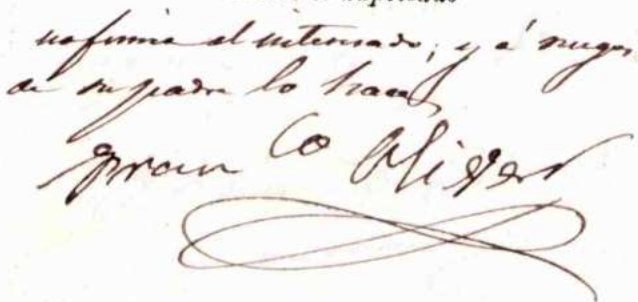 no firma el interesado, y á ruego
de su padre lo hace
Fran Co Oliver